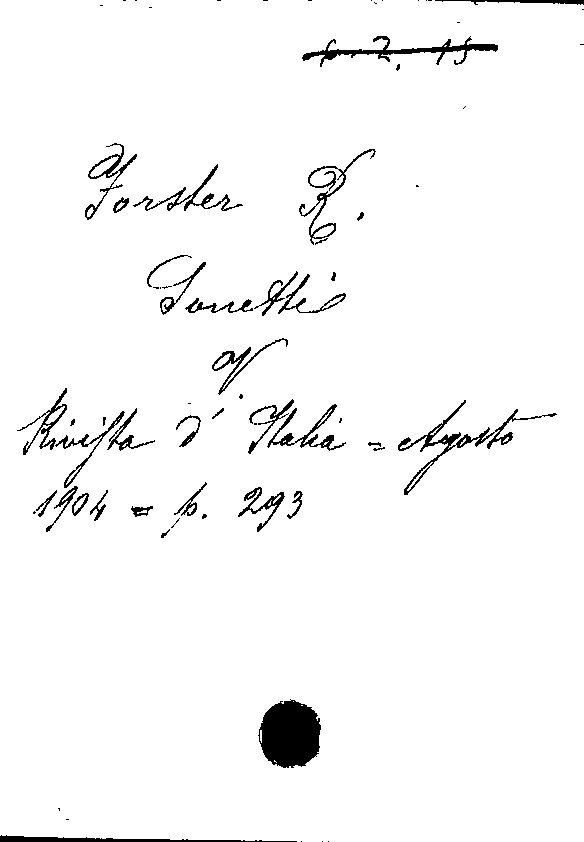 6. 2. 15
Forster R.
Sonetti
V
Rivista d'Italia = Agosto
1904 = p. 293